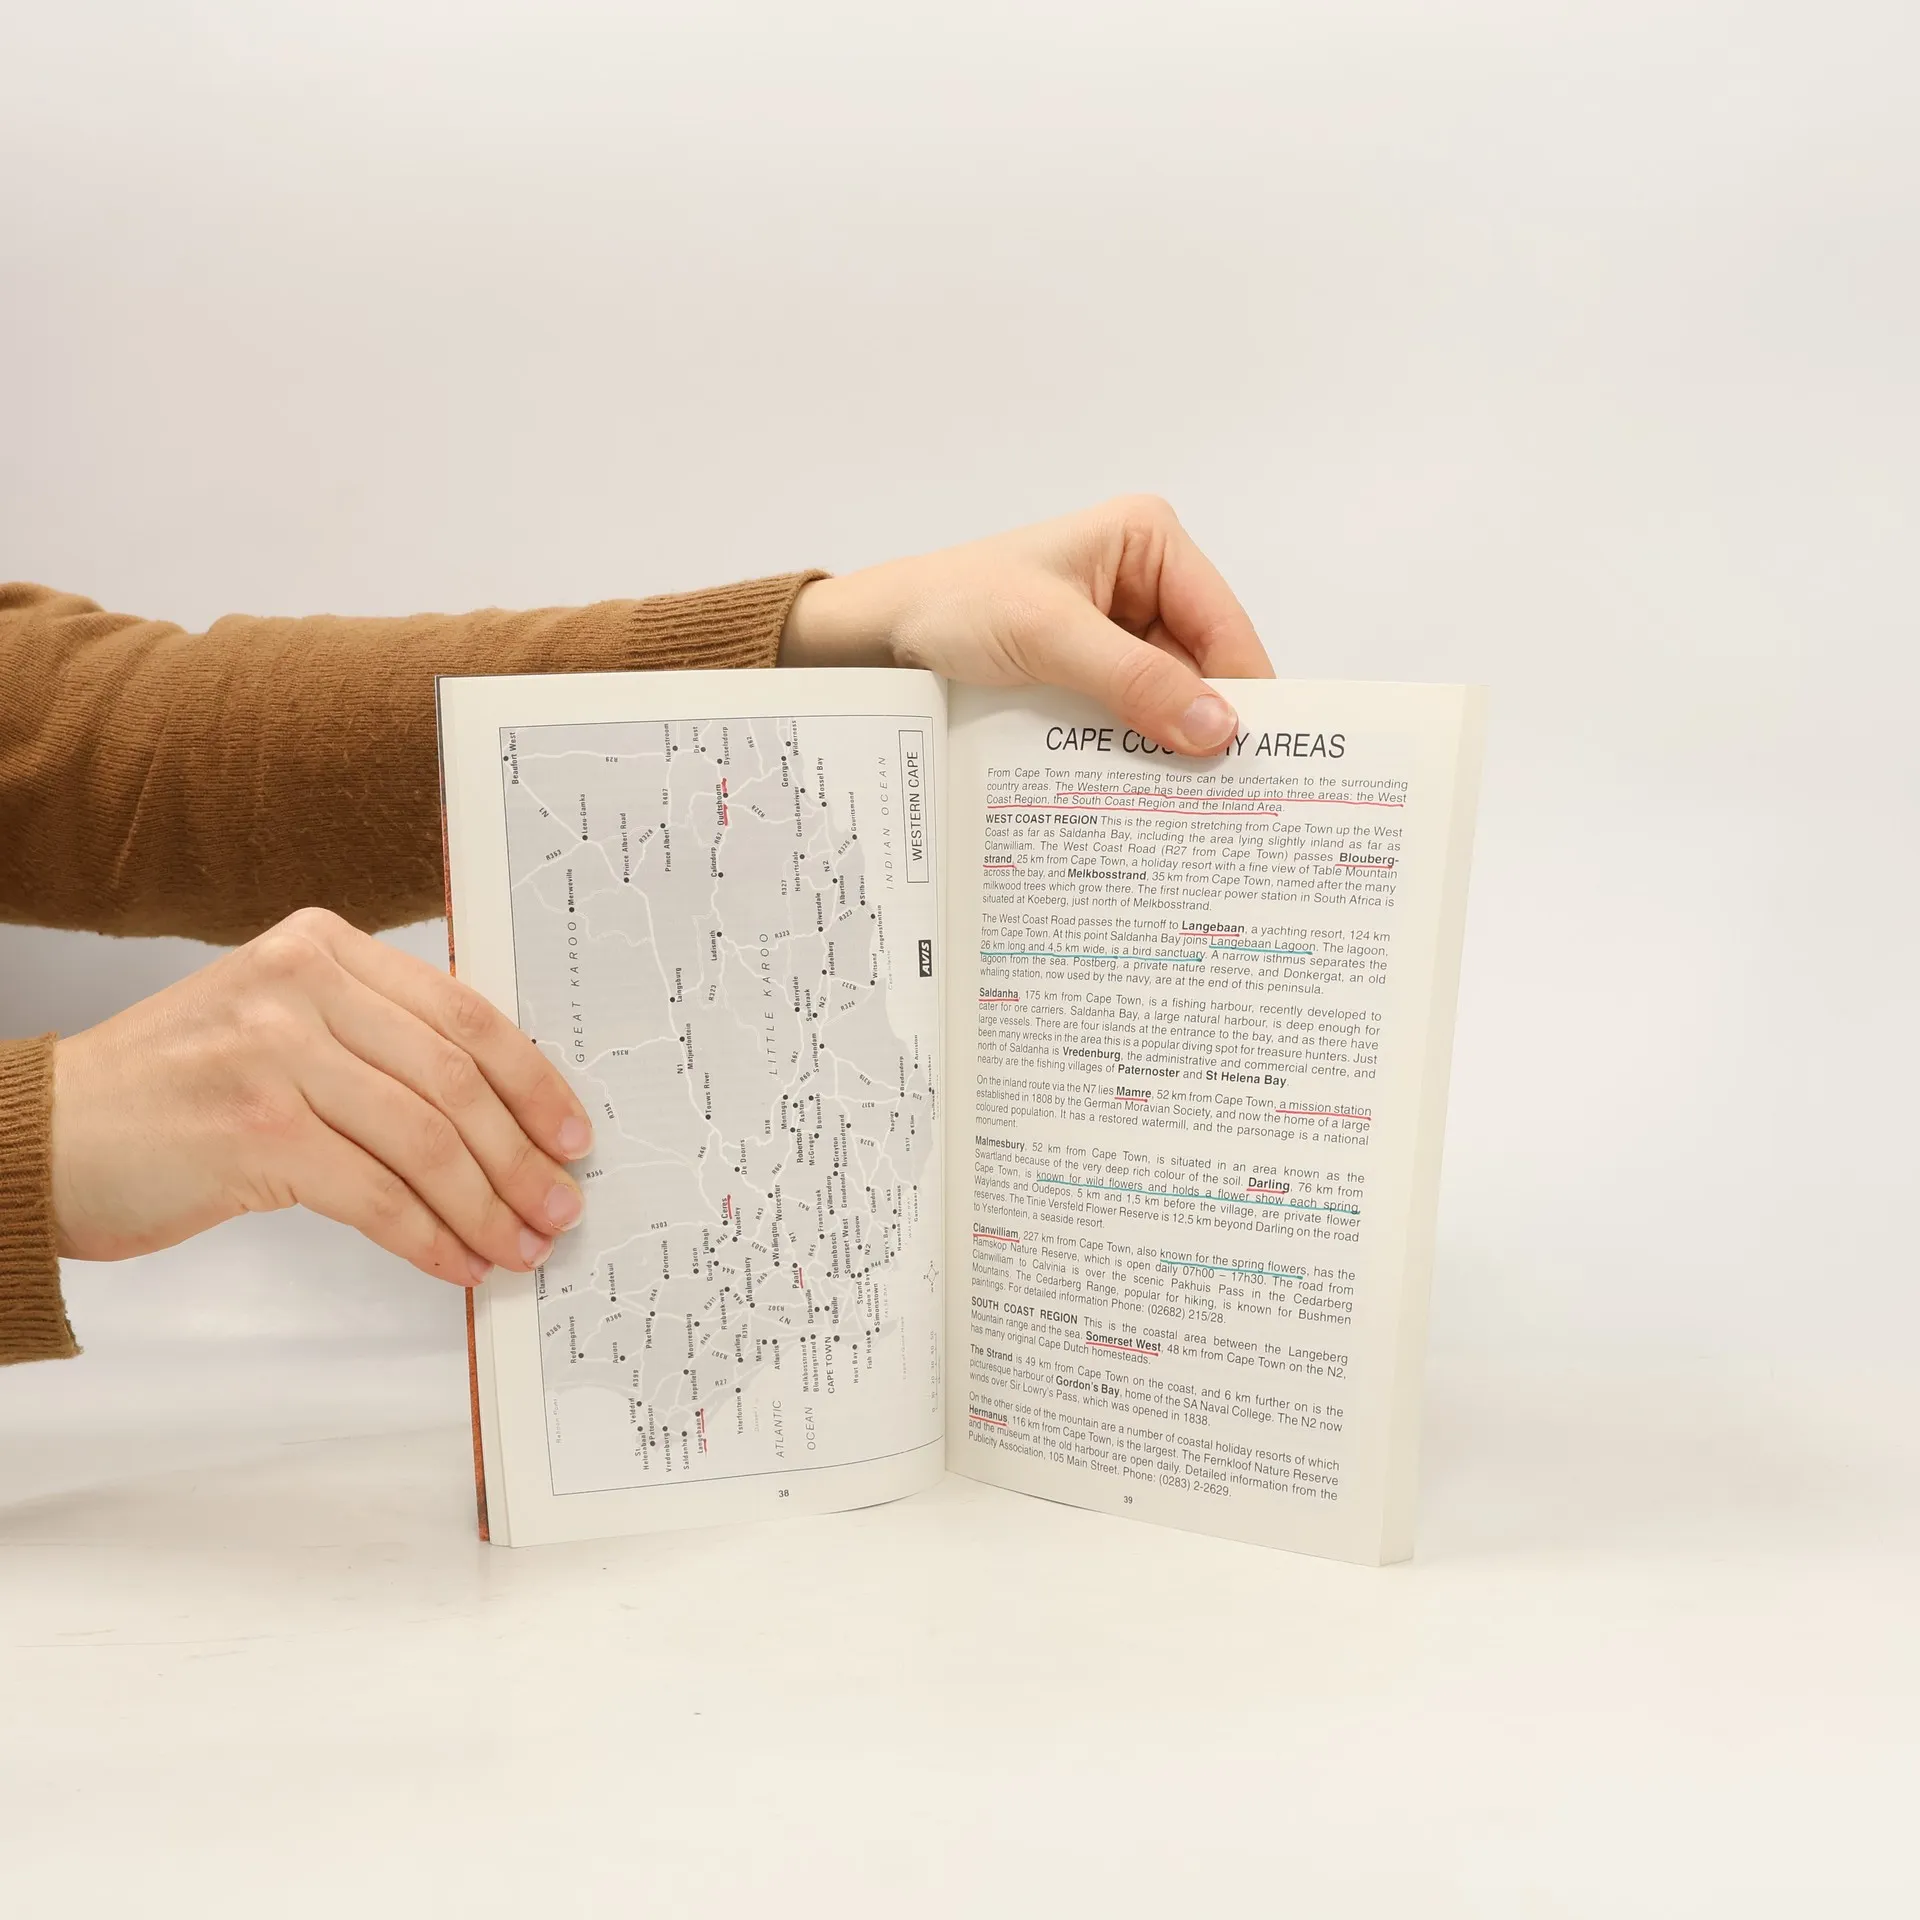 Beaufort West
N1
R29
Klaarstroom
De Rust
Dysselsdorp
R62
Wilderness
George
Mossel Bay
Leeu-Gamka
R407
Oudtshoorn
R328
Groot-Brakrivier
Gouritsmond
INDIAN OCEAN
WESTERN CAPE
R353
Prince Albert Road
R328
Prince Albert
R62
Calitzdorp
Herbertsdale
N2
R325
Merweville
R327
Albertinia
Stilbaai
Riversdale
R323
GREAT KAROO
Ladismith
LITTLE KAROO
R333
Heidelberg
Jongensfontein
Witsand
AVIS
Laingsburg
R323
Barrydale
Suurbraak
N2
R322
R324
R354
N1
Matjiesfontein
R62
Swellendam
R356
Touws River
R60
Bredasdorp
Montagu
Ashton
Bonnievale
R317
Napier
Elim
R318
Robertson
McGregor
R355
R46
De Doorns
R60
Greyton
Riviersonderend
Genadendal
R317
Ceres
Worcester
Villiersdorp
Caledon
R43
Hermanus
Gansbaai
R303
Wolseley
R43
Franschhoek
Tulbagh
R46
R303
Wellington
N1
R45
Somerset West
Grabouw
N2
Clanwilliam
Porterville
Saron
Gouda
R44
Paarl
Stellenbosch
Strand
Gordon's Bay
N7
Eendekuil
R44
R311
Riebeek-Wes
Malmesbury
R45
Durbanville
Bellville
Simonstown
R365
R366
Piketberg
Moorreesburg
R45
R315
R302
N7
Redelinghuys
Aurora
R307
Darling
Mamre
Atlantis
Melkbosstrand
Bloubergstrand
CAPE TOWN
Hout Bay
Fish Hoek
R399
Hopefield
R27
Velddrif
St. Helenabaai
Paternoster
Vredenburg
Saldanha
Langebaan
Yzerfontein
ATLANTIC
OCEAN
38
CAPE COU Y AREAS
From Cape Town many interesting tours can be undertaken to the surrounding
country areas. The Western Cape has been divided up into three areas: the West
Coast Region, the South Coast Region and the Inland Area.
WEST COAST REGION This is the region stretching from Cape Town up the West
Coast as far as Saldanha Bay, including the area lying slightly inland as far as
Clanwilliam. The West Coast Road (R27 from Cape Town) passes Blouberg-
strand, 25 km from Cape Town, a holiday resort with a fine view of Table Mountain
across the bay, and Melkbosstrand, 35 km from Cape Town, named after the many
milkwood trees which grow there. The first nuclear power station in South Africa is
situated at Koeberg, just north of Melkbosstrand.
The West Coast Road passes the turnoff to Langebaan, a yachting resort, 124 km
from Cape Town. At this point Saldanha Bay joins Langebaan Lagoon. The lagoon,
26 km long and 4,5 km wide, is a bird sanctuary. A narrow isthmus separates the
lagoon from the sea. Postberg, a private nature reserve, and Donkergat, an old
whaling station, now used by the navy, are at the end of this peninsula.
Saldanha, 175 km from Cape Town, is a fishing harbour, recently developed to
cater for ore carriers. Saldanha Bay, a large natural harbour, is deep enough for
large vessels. There are four islands at the entrance to the bay, and as there have
been many wrecks in the area this is a popular diving spot for treasure hunters. Just
north of Saldanha is Vredenburg, the administrative and commercial centre, and
nearby are the fishing villages of Paternoster and St Helena Bay.
On the inland route via the N7 lies Mamre, 52 km from Cape Town, a mission station
established in 1808 by the German Moravian Society, and now the home of a large
coloured population. It has a restored watermill, and the parsonage is a national
monument.
Malmesbury, 52 km from Cape Town, is situated in an area known as the
Swartland because of the very deep rich colour of the soil. Darling, 76 km from
Cape Town, is known for wild flowers and holds a flower show each spring.
Waylands and Oudepos, 5 km and 1,5 km before the village, are private flower
reserves. The Tinie Versfeld Flower Reserve is 12.5 km beyond Darling on the road
to Ysterfontein, a seaside resort.
Clanwilliam, 227 km from Cape Town, also known for the spring flowers, has the
Ramskop Nature Reserve, which is open daily 07h00 – 17h30. The road from
Clanwilliam to Calvinia is over the scenic Pakhuis Pass in the Cedarberg
Mountains. The Cedarberg Range, popular for hiking, is known for Bushmen
paintings. For detailed information Phone: (02682) 215/28.
SOUTH COAST REGION This is the coastal area between the Langeberg
Mountain range and the sea. Somerset West, 48 km from Cape Town on the N2,
has many original Cape Dutch homesteads.
The Strand is 49 km from Cape Town on the coast, and 6 km further on is the
picturesque harbour of Gordon's Bay, home of the SA Naval College. The N2 now
winds over Sir Lowry's Pass, which was opened in 1838.
On the other side of the mountain are a number of coastal holiday resorts of which
Hermanus, 116 km from Cape Town, is the largest. The Fernkloof Nature Reserve
and the museum at the old harbour are open daily. Detailed information from the
Publicity Association, 105 Main Street. Phone: (0283) 2-2629.
39